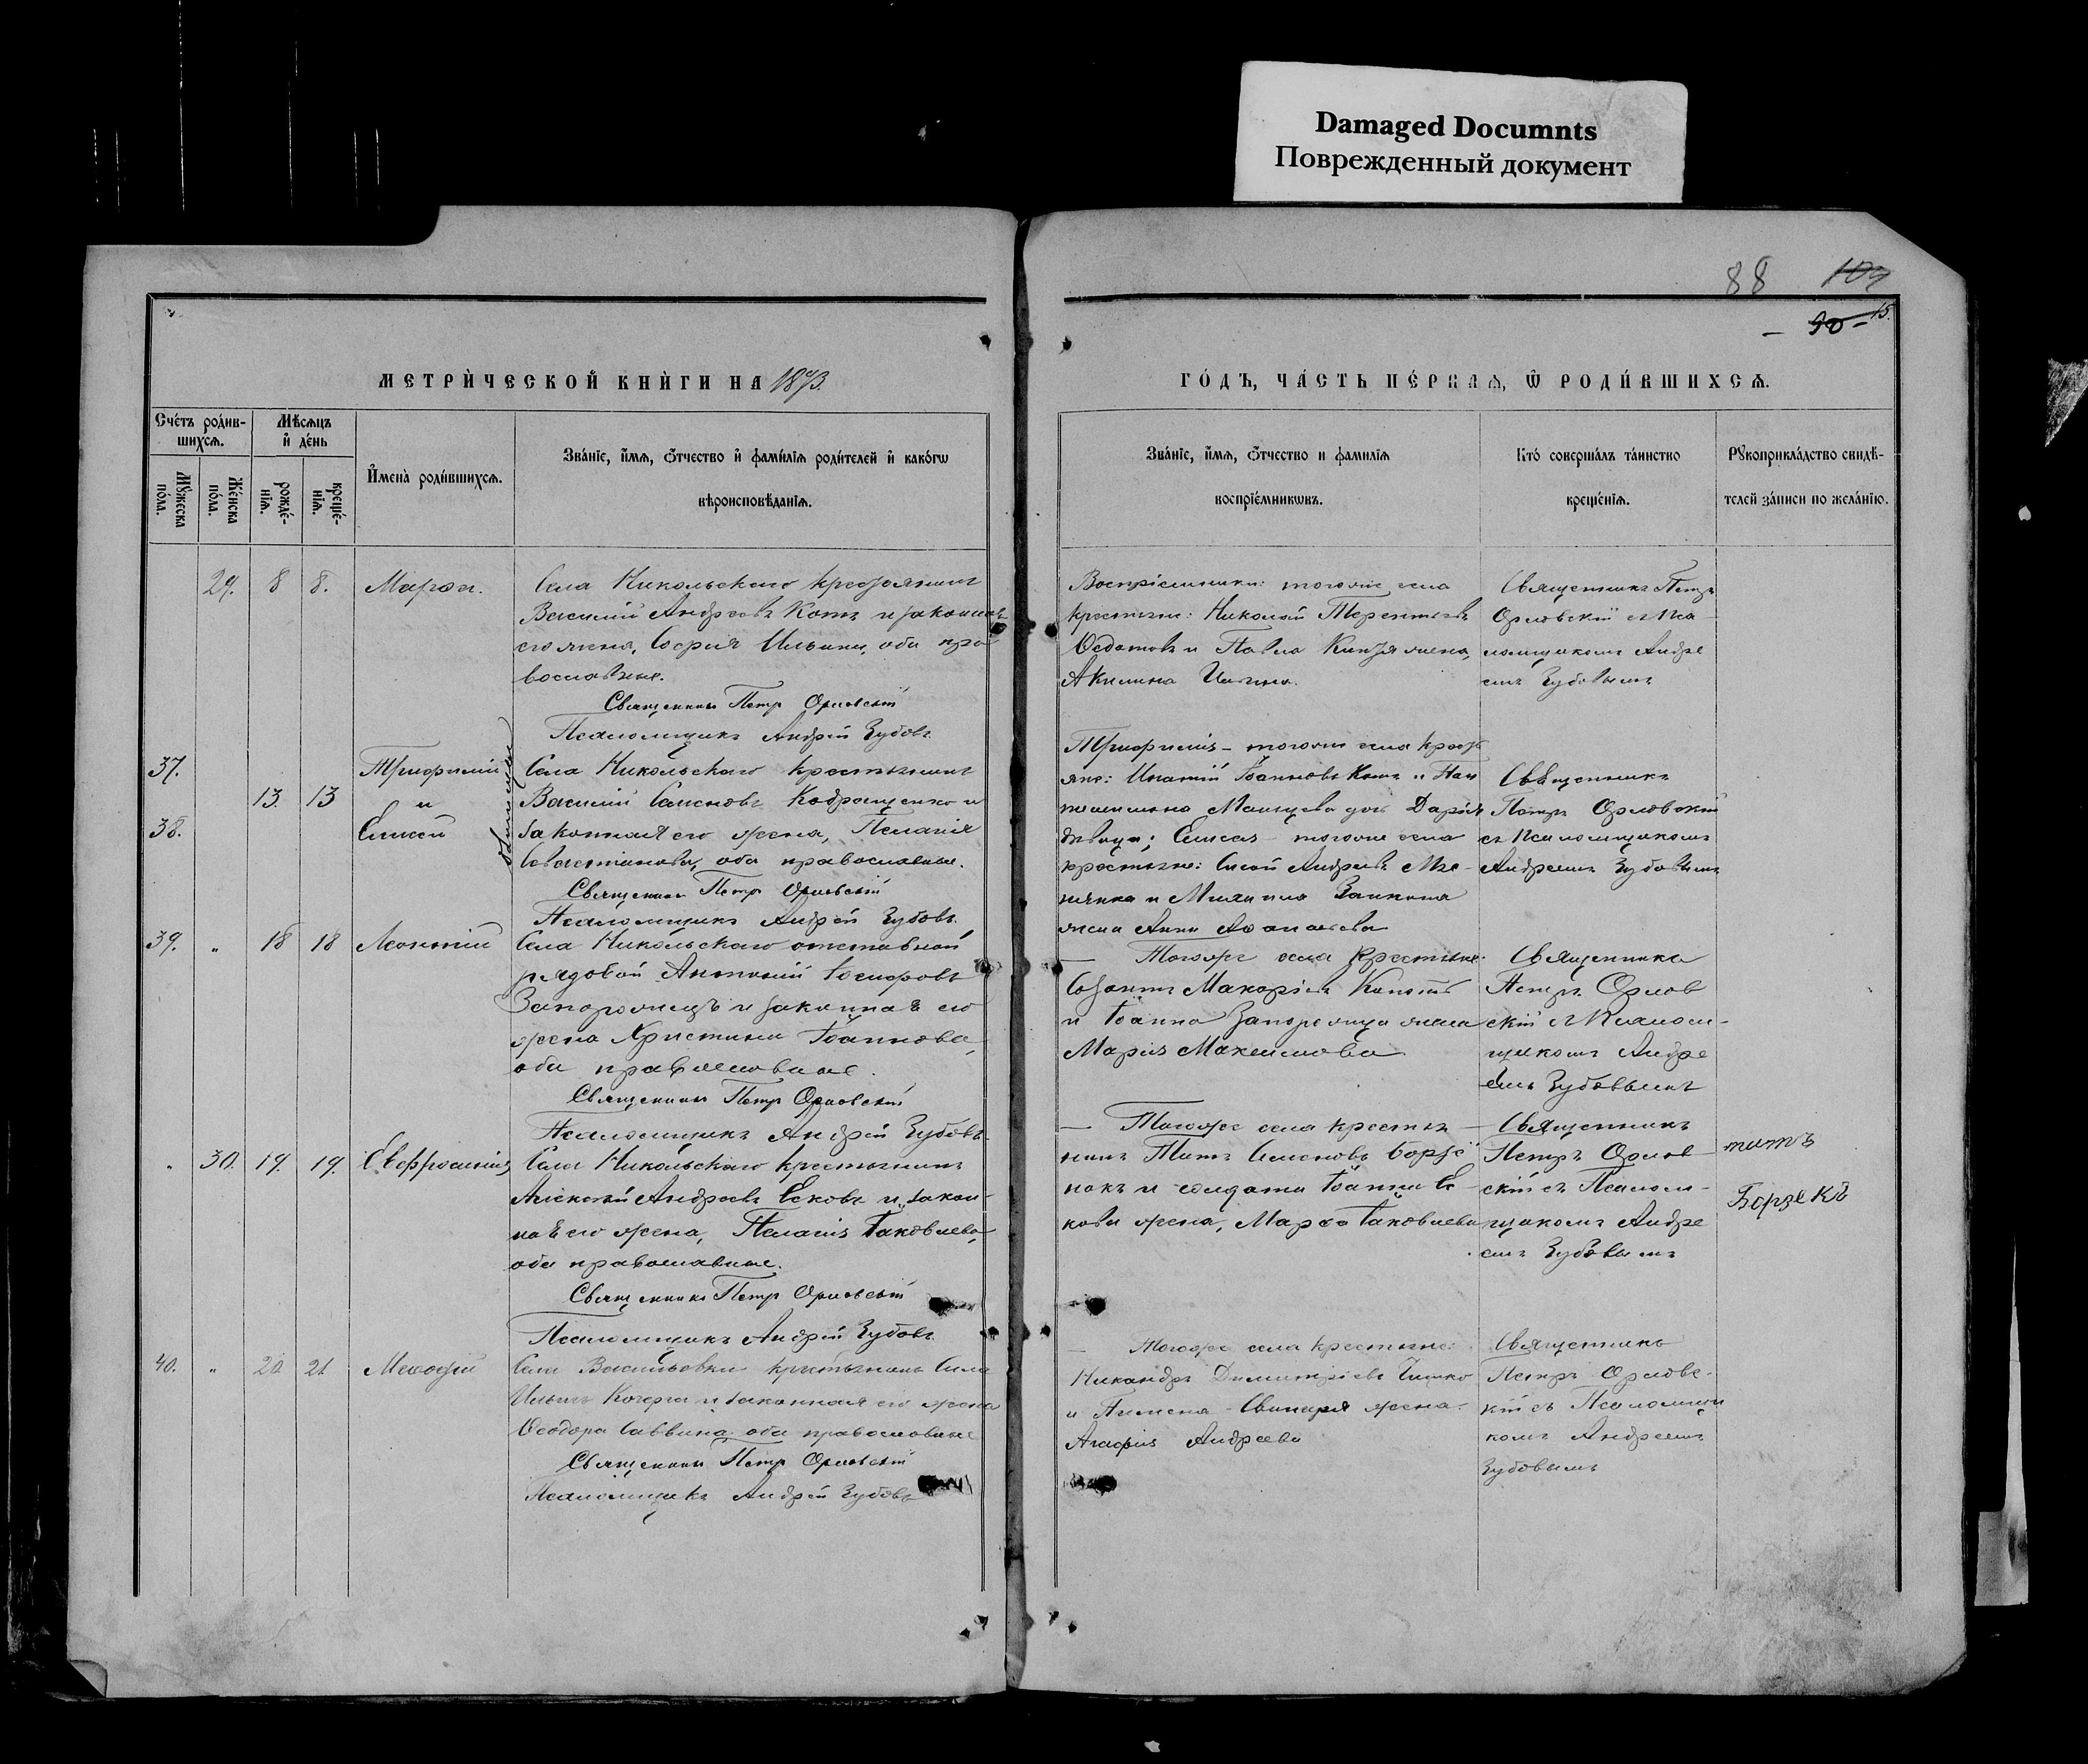 Damaged Documnts
Поврежденный документ
88 109
— 90 — 15.
МЕТРИ́ЧЕСКОЙ КНИ́ГИ НА 1873.
ГО́ДЪ, ЧА́СТЬ ПЕ́РВАѦ, Ѽ РОДИ́ВШИХСѦ.
Сче́тъ роди́в-
шихсѧ.
Мѣ́сѧцъ
и҆ де́нь
Мꙋ́жеска по́ла.
Же́нска по́ла.
рожде́-
нїѧ.
креще́-
нїѧ.
И҆мена̀ роди́вшихсѧ.
Зва́нїе, и҆́мѧ, ѻ҆́тчество и҆ фами́лїѧ роди́телей и҆ како́гѡ
вѣроисповѣ́данїѧ.
Зва́нїе, и҆́мѧ, ѻ҆́тчество и фамилїѧ
воспрїе́мникѡвъ.
Кто̀ соверша́лъ та́инство
креще́нїѧ.
Рꙋкоприкла́дство свидѣ́-
телей за́писи по жела́нїю.
29. 8 8. Марѳа.
Села Никольскаго крестьянинъ
Василій Андреевъ Котъ и законная
его жена, Софія Ильина, оба пра-
вославные.
Священникъ Петр Орловскій
Псаломщикъ Андрей Зубовъ
Воспріемники: тогоже села
крестьяне: Николай Терентьевъ
Ѳедотовъ и Павла жена,
Акилина
Священникъ Петръ
Орловскій съ Пса-
ломщикомъ Андре
емъ Зубовымъ
37.
13. 13
38.
Трифилій
и
Елисей
Села Никольскаго крестьянинъ
Василій Семеновъ и
законная его жена, Пелагія
Севастіанова, оба православные.
Священникъ Петр Орловскій
Псаломщикъ Андрей Зубовъ.
Трифилія — тогоже села кресть
яне: Игнатій Іоанновъ и Пан
дочь Дарія
дѣвица; Елисея — тогоже села
крестьяне: Андреевъ
и Михаила
жена Анна Аѳанасьева
Священникъ
Петръ Орловскій
съ Псаломщикомъ
Андреемъ Зубовымъ
39. „ 18 18 Леонтій
Села Никольскаго отставной
рядовой Антоній Іосифовъ
Запорожецъ и законная его
жена Христина Іоаннова,
оба православные.
Священникъ Петр Орловскій
Псаломщикъ Андрей Зубовъ.
— Тогоже села крестьяне:
Созонтъ Макаріевъ
и Іоанна Запорожца жена
Марія Максимова
Священникъ
Петръ Орлов
скій съ Псалом-
щикомъ Андре
емъ Зубовымъ
„ 30. 19. 19. Евфросинія
Села Никольскаго крестьянинъ
Алексѣй Андреевъ Ековъ и закон-
ная его жена, Пелагія Іаковлева,
оба православные.
Священникъ Петр Орловскій
Псаломщикъ Андрей Зубовъ
— Тогоже села крестья —
нинъ Титъ Семеновъ
и солдата Іоанна Е-
кова жена, Марѳа Іаковлева
Священникъ
Петръ Орлов
скій съ Псалом-
щикомъ Андре
емъ Зубовымъ
титъ
Борзекъ
40. „ 20 21 Меѳодій
Села Васильевки крестьянинъ Сила
Ильинъ Кочерга и законная его жена
Ѳеодора Саввина оба православные
Священникъ Петр Орловскій
Псаломщикъ Андрей Зубовъ
— Тогоже села крестьяне:
Никандръ Димитріевъ
и Пимена жена
Агафія Андреева
Священникъ
Петръ Орловс-
кій съ Псаломщи
комъ Андреемъ
Зубовымъ